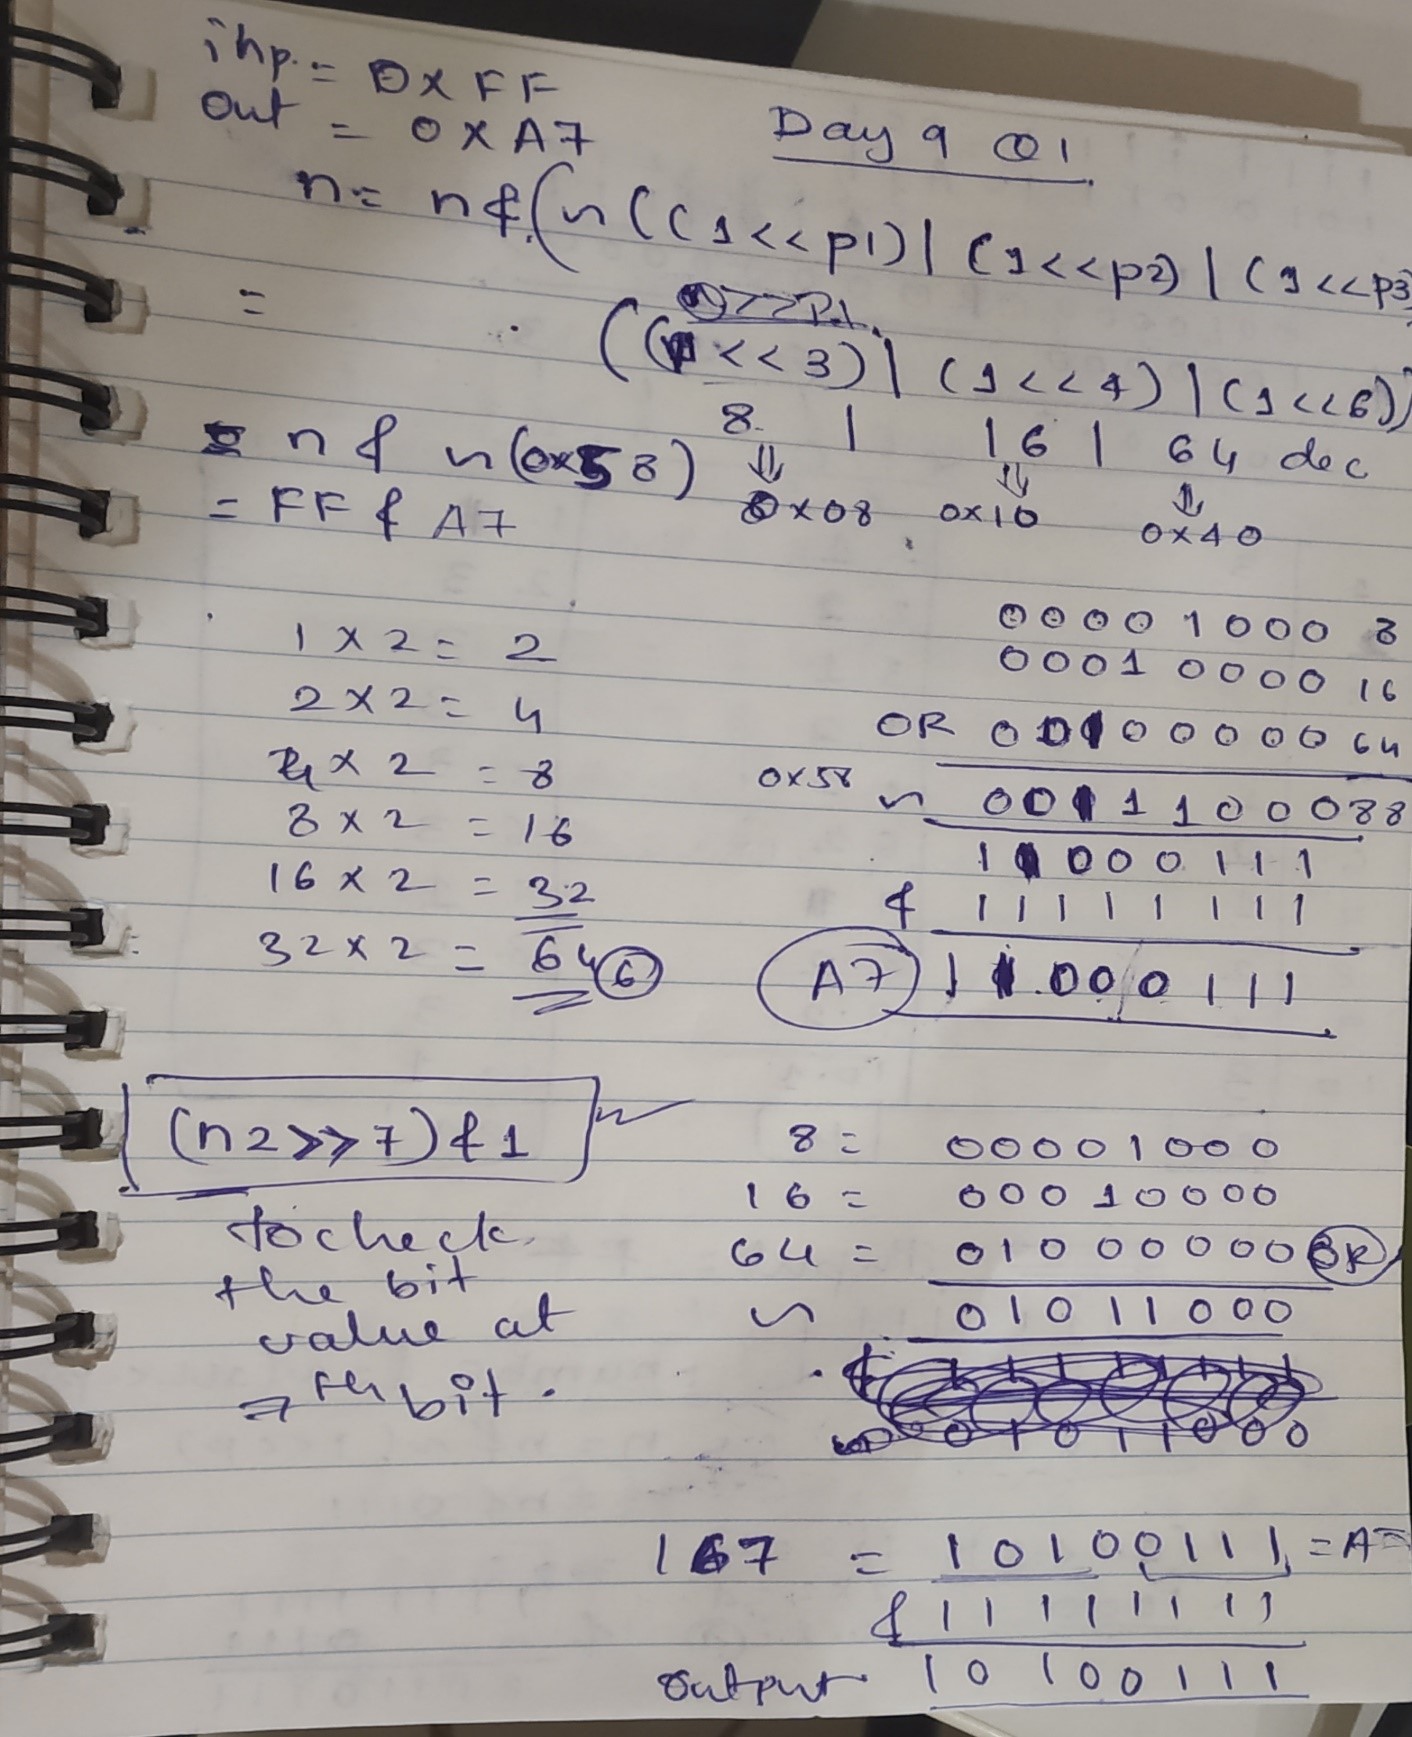 inp. = 0xFF
out = 0xA7
Day 9 Q1
n = n & (~((1<<p1) | (1<<p2) | (1<<p3)
= ((1<<3) | (1<<4) | (1<<6))
8 | 16 | 64 dec
= n & ~(0x58) ⇓ ⇓ ⇓
= FF & A7 0x08 0x10 0x40
1 x 2 = 2
2 x 2 = 4
4 x 2 = 8
8 x 2 = 16
16 x 2 = 32
32 x 2 = 64 6
00001000 8
00010000 16
OR 00100000 64
0x58 ~ 00111000 88
11000111
& 11111111
A7 11000111
(n2>>7) & 1
to check
the bit
value at
7th bit.
8 = 00001000
16 = 00010000
64 = 01000000 OR
~ 01011000
167 = 10100111 = A7
& 11111111
output 10100111